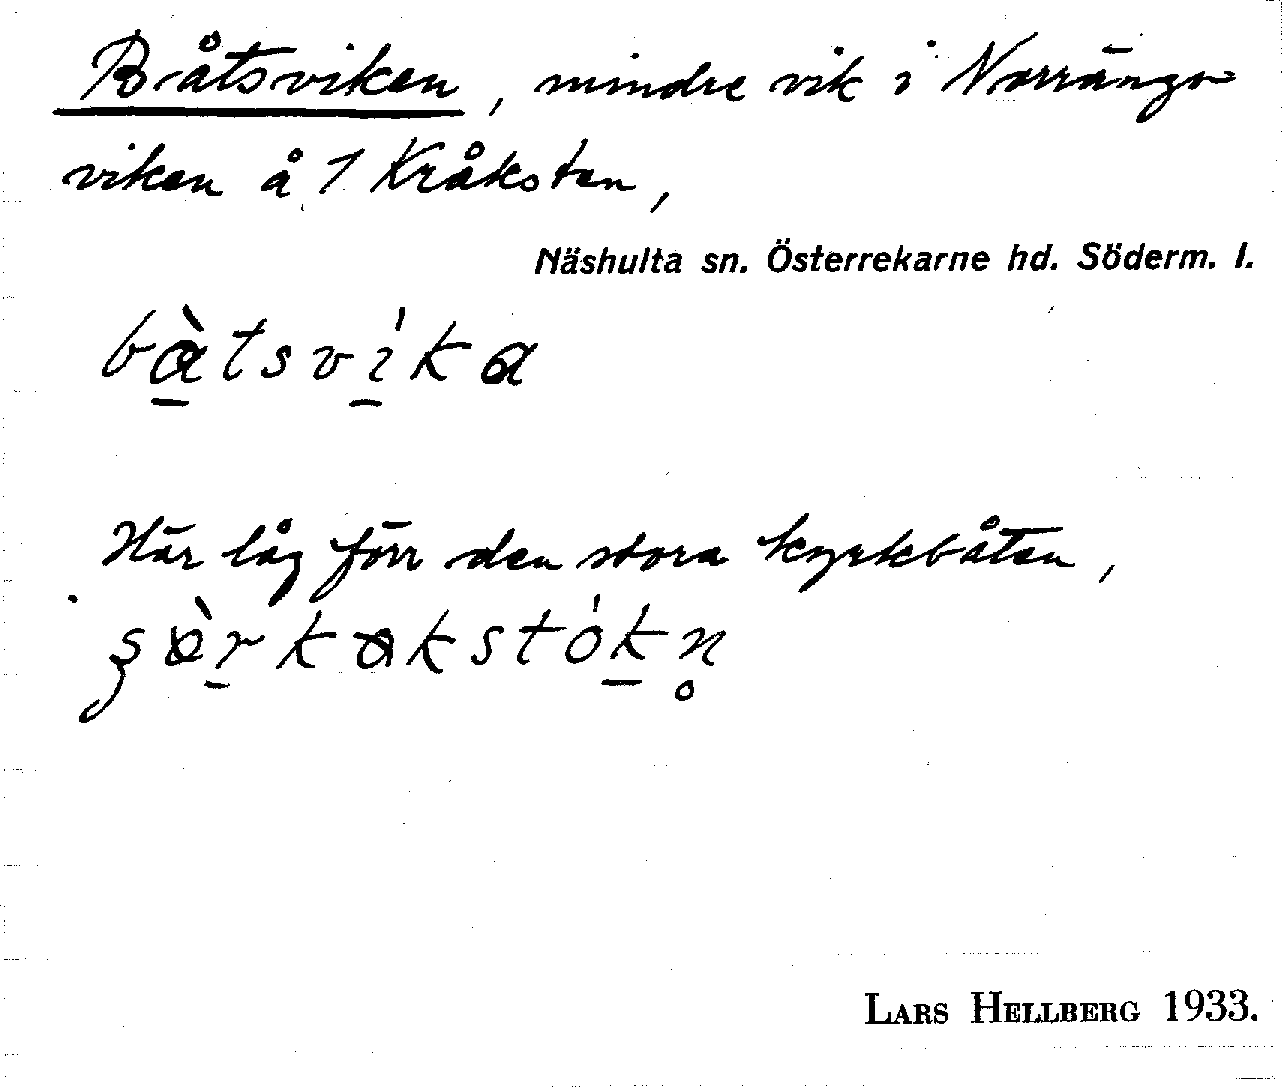 Båtsviken, mindre vik i Norrängs-
viken å 1 Kråksten,
Näshulta sn. Österrekarne hd. Söderm. l.
bàtsvi̍ka
Här låg förr den stora kyrkbåten,
LARS HELLBERG 1933.